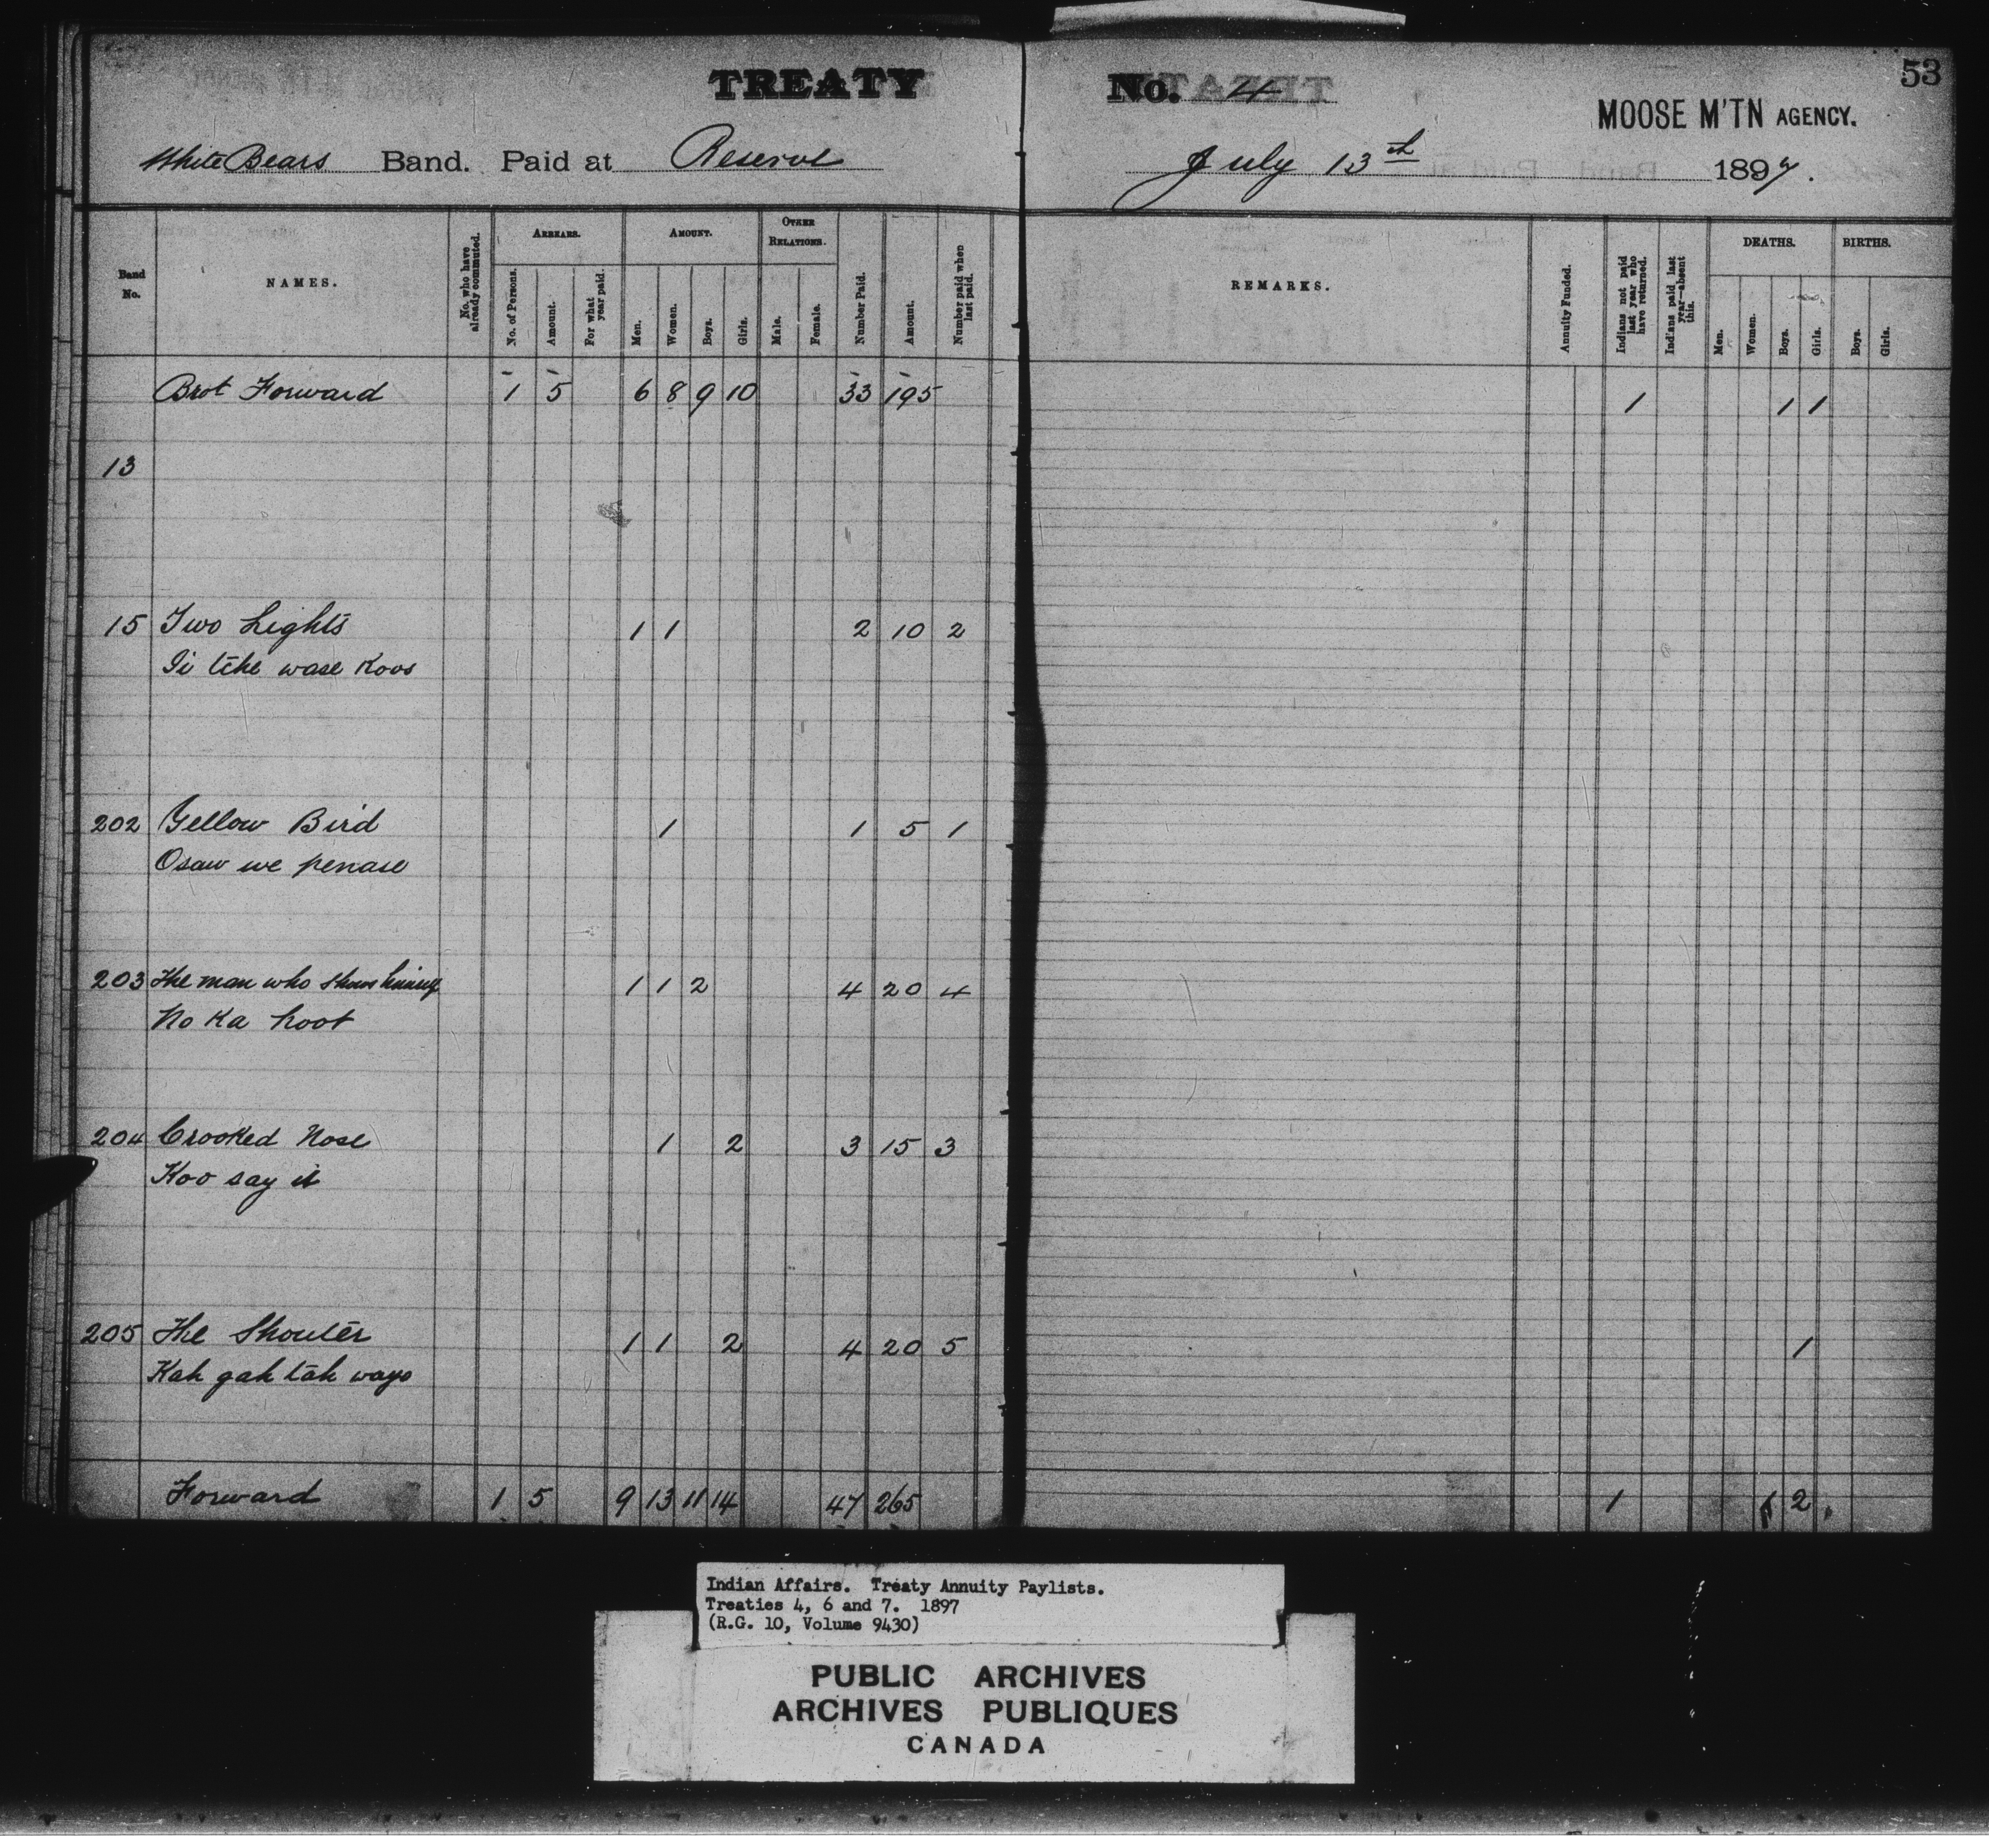 TREATY No. 4
53
MOOSE M'TN AGENCY.
White Bears Band. Paid at Reserve July 13th 1897.
Band No.
NAMES.
No. who have already commuted.
ARREARS.
No. of Persons.
Amount.
For what year paid.
AMOUNT.
Men.
Women.
Boys.
Girls.
OTHER RELATIONS.
Male.
Female.
Number Paid.
Amount.
Number paid when last paid.
REMARKS.
Annuity Funded.
Indians not paid last year who have returned.
Indians paid last year—absent this.
DEATHS.
Men.
Women.
Boys.
Girls.
BIRTHS.
Boys.
Girls.
Brot Forward 1 5 6 8 9 10 33 195 1 1 1
13
15 Two Lights 1 1 2 10 2
wase Koos
202 Yellow Bird 1 1 5 1
Osaw we penase
203 The man who 1 1 2 4 20 4
No Ka hoot
204 Crooked Nose 1 2 3 15 3
Koo say it
205 The Shouter 1 1 2 4 20 5 1
Kah gah tah ways
Forward 1 5 9 13 11 14 47 265 1 1 2
Indian Affairs. Treaty Annuity Paylists.
Treaties 4, 6 and 7. 1897
(R.G. 10, Volume 9430)
PUBLIC ARCHIVES
ARCHIVES PUBLIQUES
CANADA